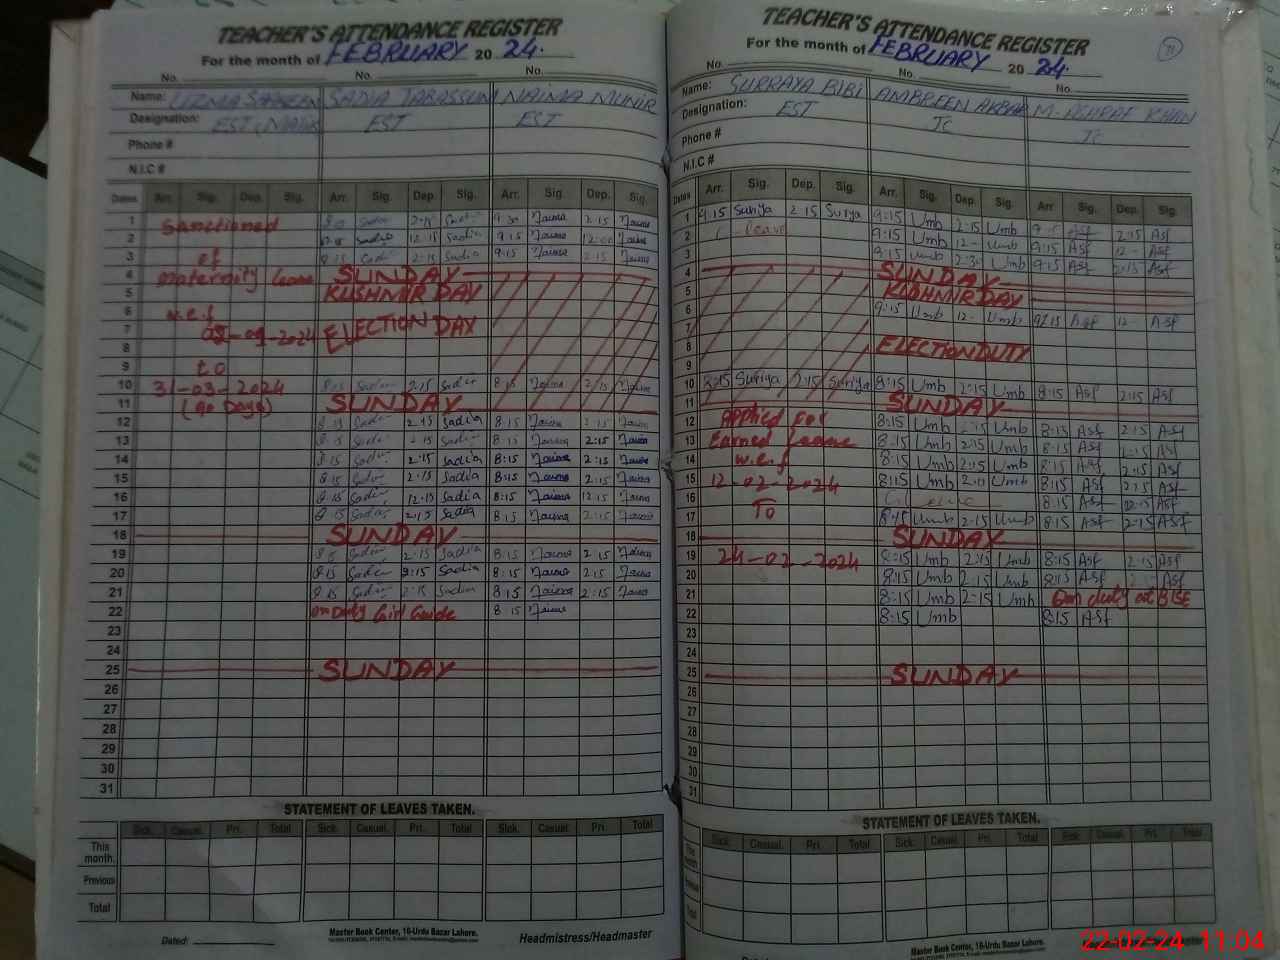 TEACHER'S ATTENDANCE REGISTER
For the month of FEBRUARY 20 24.
No. No. No.
Name: UZMA SADIA TABASSUM NAIMA MUNIR
Designation: EST EST EST
Phone #
N.I.C #
Dates Arr. Sig. Dep. Sig. Arr. Sig. Dep. Sig. Arr. Sig. Dep. Sig.
1 Sanctioned 2:15 9:30 Naima 2:15 Naima
2 Sadia 12:15 Sadia 9:15 Naima 12:00 Naima
3 of 8:15 Sadia 2:15 Sadia 9:15 Naima 2:15 Naima
4 maternity leave SUNDAY
5 KASHMIR DAY
6 w.e.f
7 -2024 ELECTION DAY
8
9 to
10 31-03-2024 8:15 Sadia 2:15 Sadia 8:15 Naima 2:15 Naima
11 (90 Days) SUNDAY
12 8:15 Sadia 2:15 Sadia 8:15 Naima 2:15 Naima
13 8:15 Sadia 2:15 Sadia 8:15 Naima 2:15 Naima
14 8:15 Sadia 2:15 Sadia 8:15 Naima 2:15 Naima
15 8:15 Sadia 2:15 Sadia 8:15 Naima 2:15 Naima
16 8:15 Sadia 12:15 Sadia 8:15 Naima 12:15 Naima
17 8:15 Sadia 2:15 Sadia 8:15 Naima 2:15 Naima
18 SUNDAY
19 8:15 Sadia 2:15 Sadia 8:15 Naima 2:15 Naima
20 8:15 Sadia 2:15 Sadia 8:15 Naima 2:15 Naima
21 8:15 Sadia 2:15 Sadia 8:15 Naima 2:15 Naima
22 on Duty Girl Guide 8:15 Naima
23
24
25 SUNDAY
26
27
28
29
30
31
STATEMENT OF LEAVES TAKEN.
Sick. Casual. Pri. Total Sick. Casual. Pri. Total Sick. Casual. Pri. Total
This month.
Previous
Total
Master Book Center, 16-Urdu Bazar Lahore.
Dated: Headmistress/Headmaster
TEACHER'S ATTENDANCE REGISTER
For the month of FEBRUARY 20 24.
No. No. No.
Name: SURRAYA BIBI AMBREEN AKBAR M. ASHRAF KHAN
Designation: EST JC JC
Phone #
N.I.C #
Dates Arr. Sig. Dep. Sig. Arr. Sig. Dep. Sig. Arr. Sig. Dep. Sig.
1 9:15 Suriya 2:15 Suriya 9:15 Umb 2:15 Umb 9:15 Asf 2:15 Asf
2 leave 9:15 Umb 12- Umb 9:15 Asf 12- Asf
3 9:15 Umb 2:30 Umb 9:15 Asf 2:15 Asf
4 SUNDAY
5 KASHMIR DAY
6 9:15 Umb 12- Umb 9:15 Asf 12- Asf
7
8 ELECTION DUTY
9
10 8:15 Suriya 2:15 Suriya 8:15 Umb 2:15 Umb 8:15 Asf 2:15 Asf
11 SUNDAY
12 Applied For 8:15 Umb 2:15 Umb 8:15 Asf 2:15 Asf
13 Earned Leave 8:15 Umb 2:15 Umb 8:15 Asf 2:15 Asf
14 w.e.f 8:15 Umb 2:15 Umb 8:15 Asf 2:15 Asf
15 12-02-2024 8:15 Umb 2:15 Umb 8:15 Asf 2:15 Asf
16 To 8:15 Asf Asf
17 8:15 Umb 2:15 Umb 8:15 Asf 2:15 Asf
18 SUNDAY
19 24-02-2024 8:15 Umb 2:15 Umb 8:15 Asf 2:15 Asf
20 8:15 Umb 2:15 Umb 8:15 Asf Asf
21 8:15 Umb 2:15 Umb duty at BISE
22 8:15 Umb 8:15 Asf
23
24
25 SUNDAY
26
27
28
29
30
31
STATEMENT OF LEAVES TAKEN.
Sick. Casual. Pri. Total Sick. Casual. Pri. Total Sick. Casual. Pri. Total
This month.
Previous
Total
Master Book Center, 16-Urdu Bazar Lahore.
22-02-24 11:04